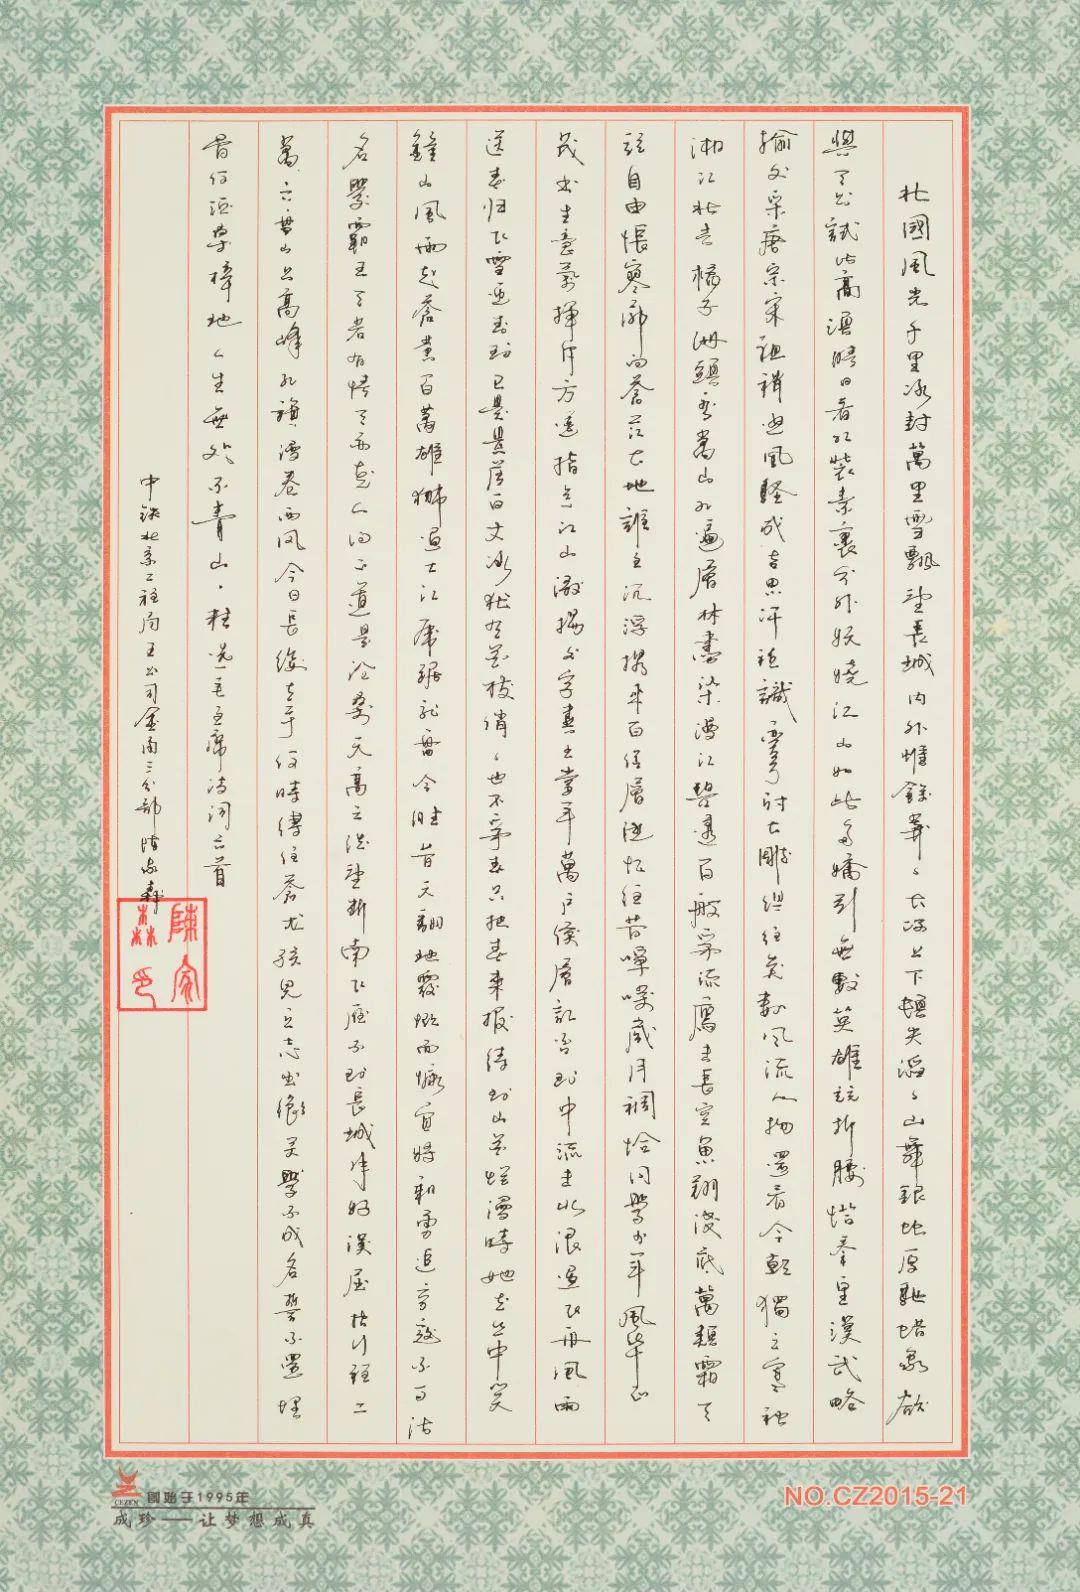 北國風光千里冰封萬里雪飄望長城内外惟餘莽ヽ大河上下頓失滔ヽ山舞銀蛇原馳蜡象欲
與天公試比高須晴日看红裝素裹分外妖嬈江山如此多嬌引無數英雄競折腰惜秦皇漢武略
輸文采唐宗宋祖稍遜風騷成吉思汗祇識彎弓射大雕俱往矣數风流人物還看今朝獨立寒秋
湘江北去橘子洲頭看萬山红遍層林盡染漫江碧透百般爭流鷹击長空魚翔淺底萬類霜天
競自由悵寥廓问蒼茫大地誰主沉浮攜来百侣層遊忆往昔崢嶸歲月稠恰同學少年風华正
茂书生意氣揮斥方遒指点江山激揚文字糞土當年萬户侯層記否到中流击水浪遏飞舟風雨
送春归飞雪迎春到已是悬崖百丈冰犹有花枝俏ヽ也不争春只把春来报待到山花烂漫時她在丛中笑
鍾山風雨起蒼黄百萬雄獅過大江虎踞龙盤今胜昔天翻地覆慨而慷宜將剩勇追穷寇不可沽
名學霸王天若有情天亦老人间正道是沧桑天高云淡望断南飞雁不到長城非好漢屈指行程二
萬六盤山上高峰红旗漫卷西风今日長缨在手何時缚住苍龙孩兒立志出鄉关學不成名誓不還埋
骨何须桑梓地人生無处不青山毛主席诗词六首
中铁北京工程局五公司金甬三分部陈家森
陳家森印
CEZEN 創始于1995年
成珍——让梦想成真
NO.CZ2015-21